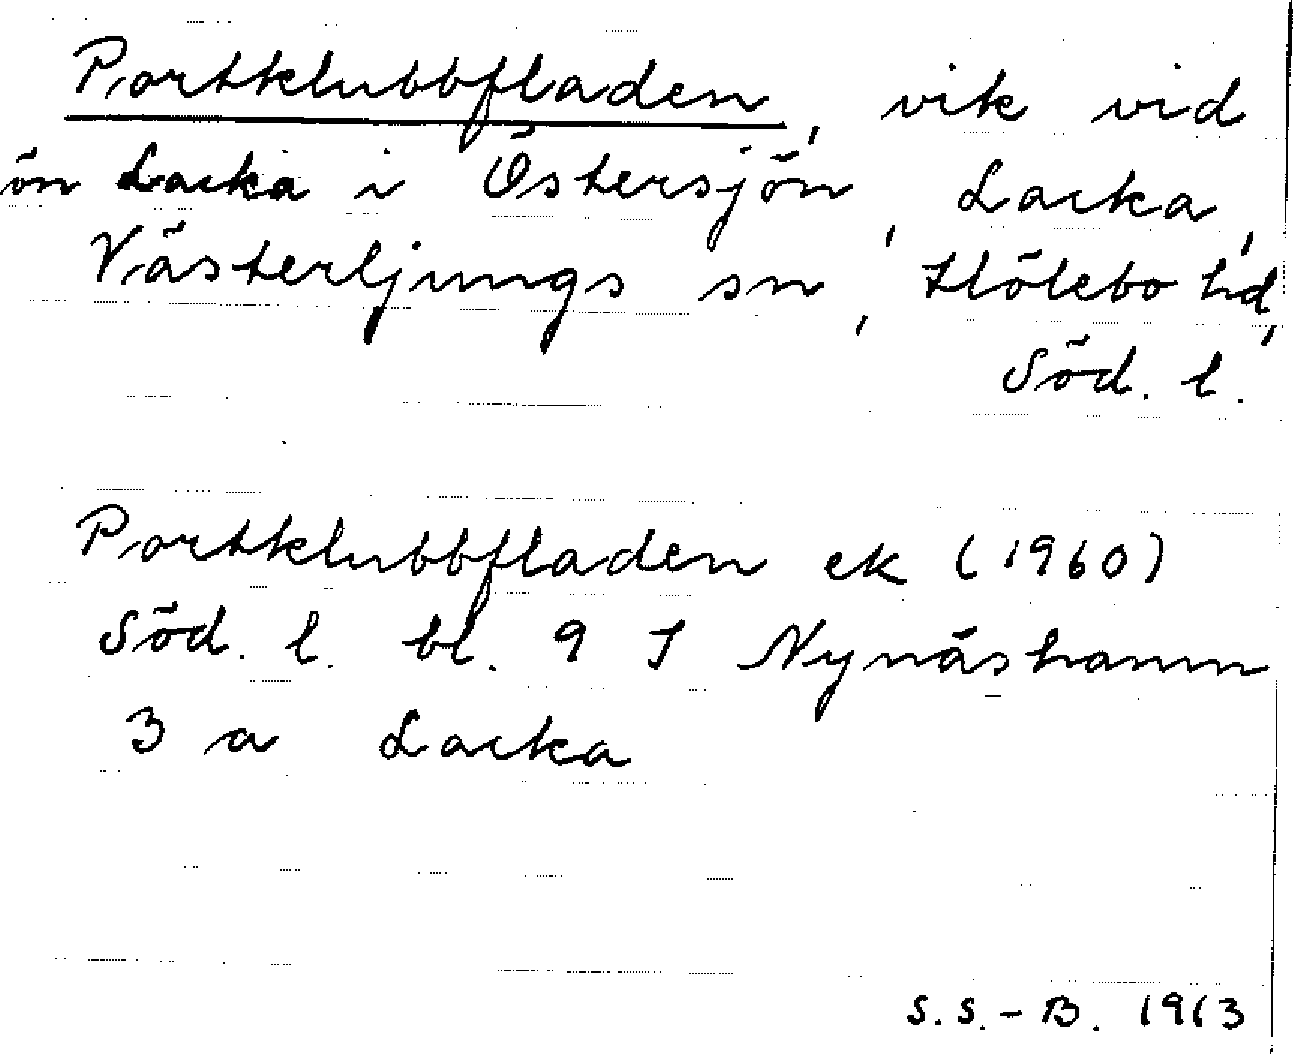 Portklubbfladen, vik vid
ön Lacka i Östersjön, Lacka,
Västerljungs sn, Hölebo hd,
Söd. l.
Portklubbfladen ek (1960)
Söd. l. bl. 9 I Nynäshamn
3 a Lacka
S.S.-B. 1963